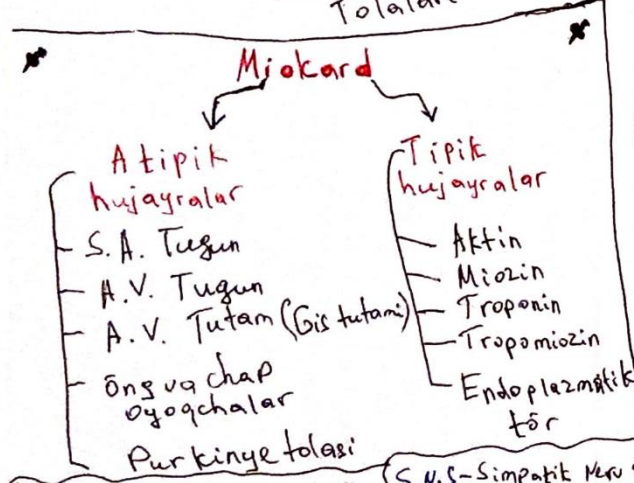 Tolalari
Miokard
Atipik
hujayralar
S.A. Tugun
A.V. Tugun
A.V. Tutam (Gis tutami)
õng va chap
oyoqchalar
Purkinye tolasi
Tipik
hujayralar
Aktin
Miozin
Troponin
Tropomiozin
Endoplazmatik
tõr
(S.N.S-Simpatik Nerv